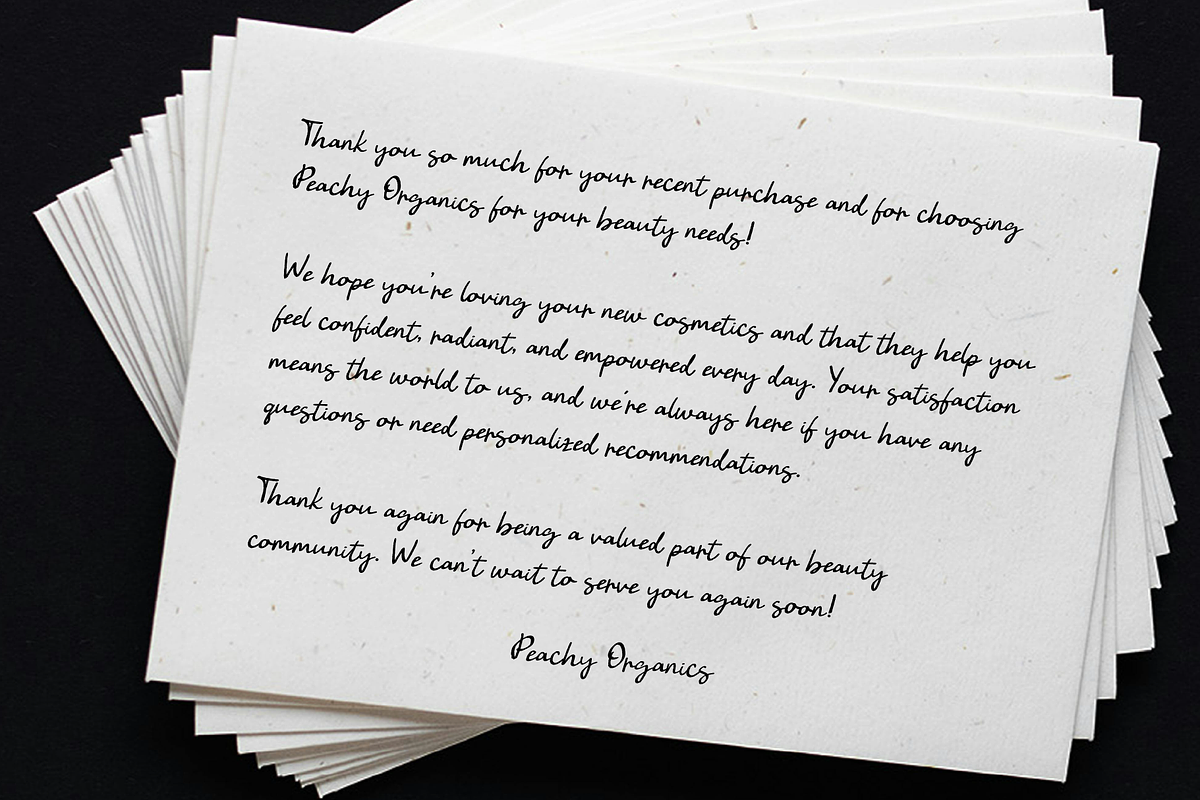 Thank you so much for your recent purchase and for choosing
Peachy Organics for your beauty needs!
We hope you're loving your new cosmetics and that they help you
feel confident, radiant, and empowered every day. Your satisfaction
means the world to us, and we're always here if you have any
questions or need personalized recommendations.
Thank you again for being a valued part of our beauty
community. We can't wait to serve you again soon!
Peachy Organics